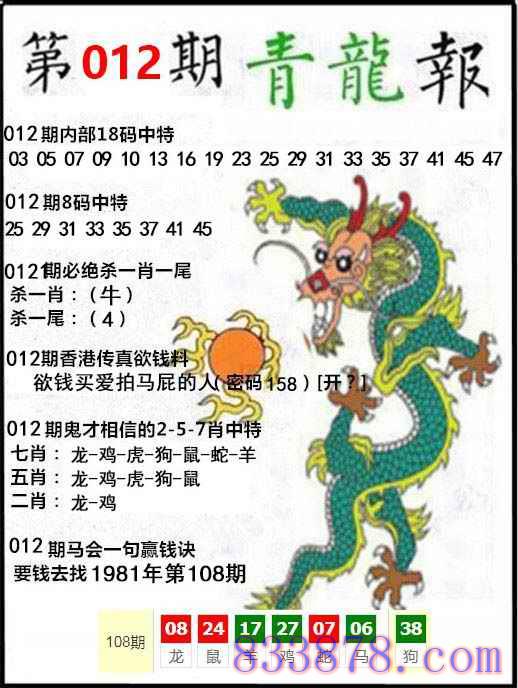 第012期青龍報
012期内部18码中特
03 05 07 09 10 13 16 19 23 25 29 31 33 35 37 41 45 47
012期8码中特
25 29 31 33 35 37 41 45
012期必绝杀一肖一尾
杀一肖：（牛）
杀一尾：（4）
012期香港传真欲钱料
欲钱买爱拍马屁的人（密码158）[开？]
012期鬼才相信的2-5-7肖中特
七肖：龙-鸡-虎-狗-鼠-蛇-羊
五肖：龙-鸡-虎-狗-鼠
二肖：龙-鸡
012期马会一句赢钱诀
要钱去找1981年第108期
108期 08 24 17 27 07 06 38
龙 鼠 羊 鸡 蛇 马 狗
833878.com